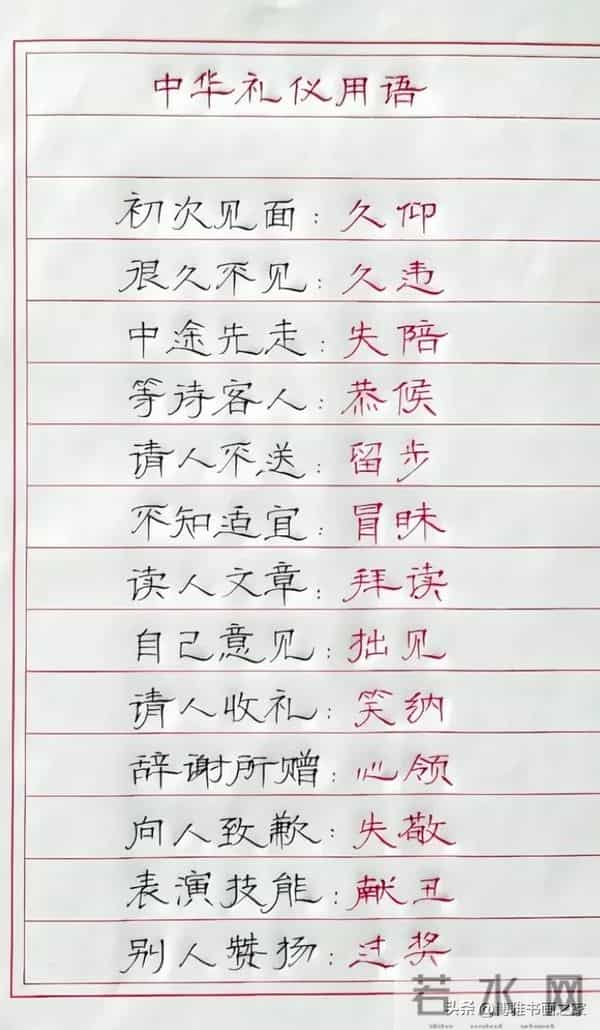 中华礼仪用语
初次见面：久仰
很久不见：久违
中途先走：失陪
等待客人：恭候
请人不送：留步
不知适宜：冒昧
读人文章：拜读
自己意见：拙见
请人收礼：笑纳
辞谢所赠：心领
向人致歉：失敬
表演技能：献丑
别人赞扬：过奖
若水网
头条@博雅书画之家